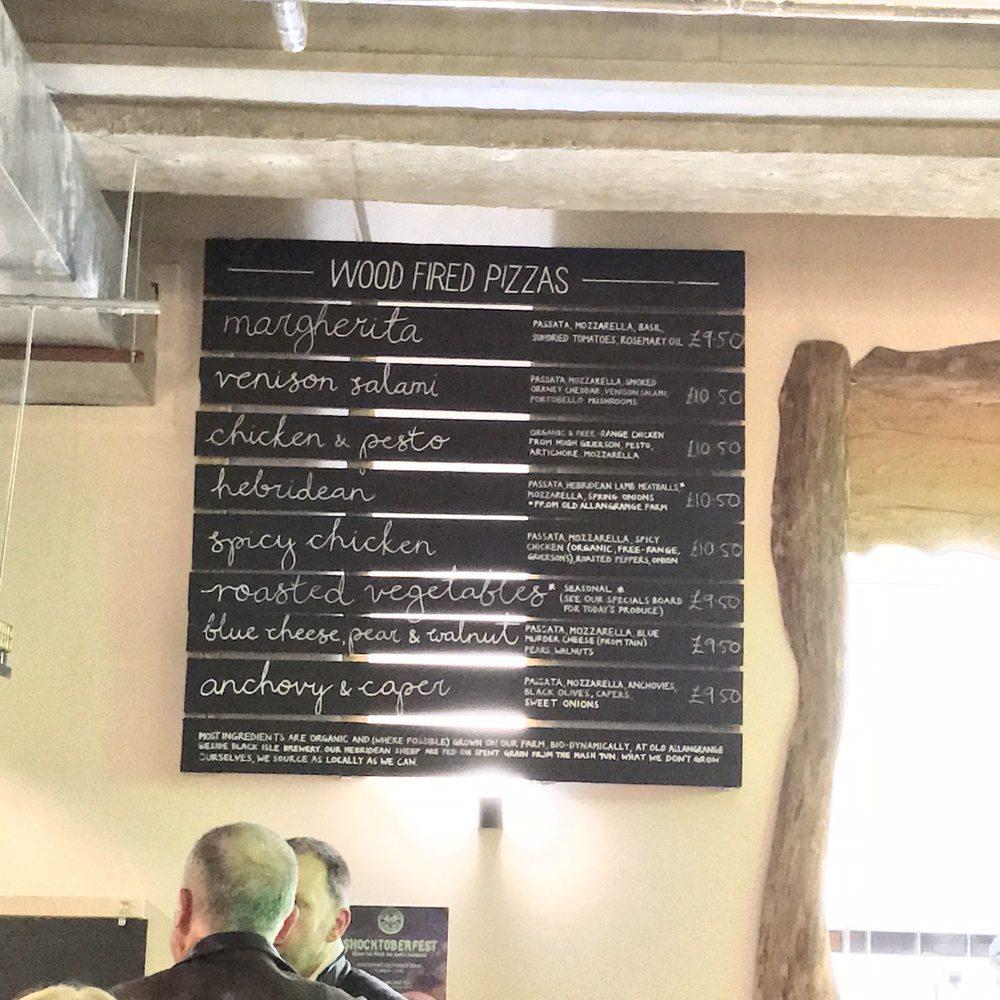 WOOD FIRED PIZZAS
margherita
PASSATA, MOZZARELLA, BASIL,
SUNDRIED TOMATOES, ROSEMARY OIL £9.50
venison salami
PASSATA, MOZZARELLA, SMOKED
ORKNEY CHEDDAR, VENISON SALAMI,
PORTOBELLO MUSHROOMS
£10.50
chicken & pesto
ORGANIC & FREE-RANGE CHICKEN
FROM HUGH GRIERSON, PESTO,
ARTICHOKE, MOZZARELLA
£10.50
hebridean
PASSATA, HEBRIDEAN LAMB MEATBALLS,*
MOZZARELLA, SPRING ONIONS
*FROM OLD ALLANGRANGE FARM
£10.50
spicy chicken
PASSATA, MOZZARELLA, SPICY
CHICKEN (ORGANIC, FREE-RANGE,
GRIERSONS), ROASTED PEPPERS, ONION
£10.50
roasted vegetables*
SEASONAL *
(SEE OUR SPECIALS BOARD
FOR TODAY'S PRODUCE)
£9.50
blue cheese, pear & walnut
PASSATA, MOZZARELLA, BLUE
MURDER CHEESE (FROM TAIN)
PEARS, WALNUTS
£9.50
anchovy & caper
PASSATA, MOZZARELLA, ANCHOVIES,
BLACK OLIVES, CAPERS
SWEET ONIONS
£9.50
MOST INGREDIENTS ARE ORGANIC AND (WHERE POSSIBLE) GROWN ON OUR FARM, BIO-DYNAMICALLY, AT OLD ALLANGRANGE
BESIDE BLACK ISLE BREWERY. OUR HEBRIDEAN SHEEP ARE FED ON SPENT GRAIN FROM THE MASH TUN. WHAT WE DON'T GROW
OURSELVES, WE SOURCE AS LOCALLY AS WE CAN.
SHOCKTOBERFEST